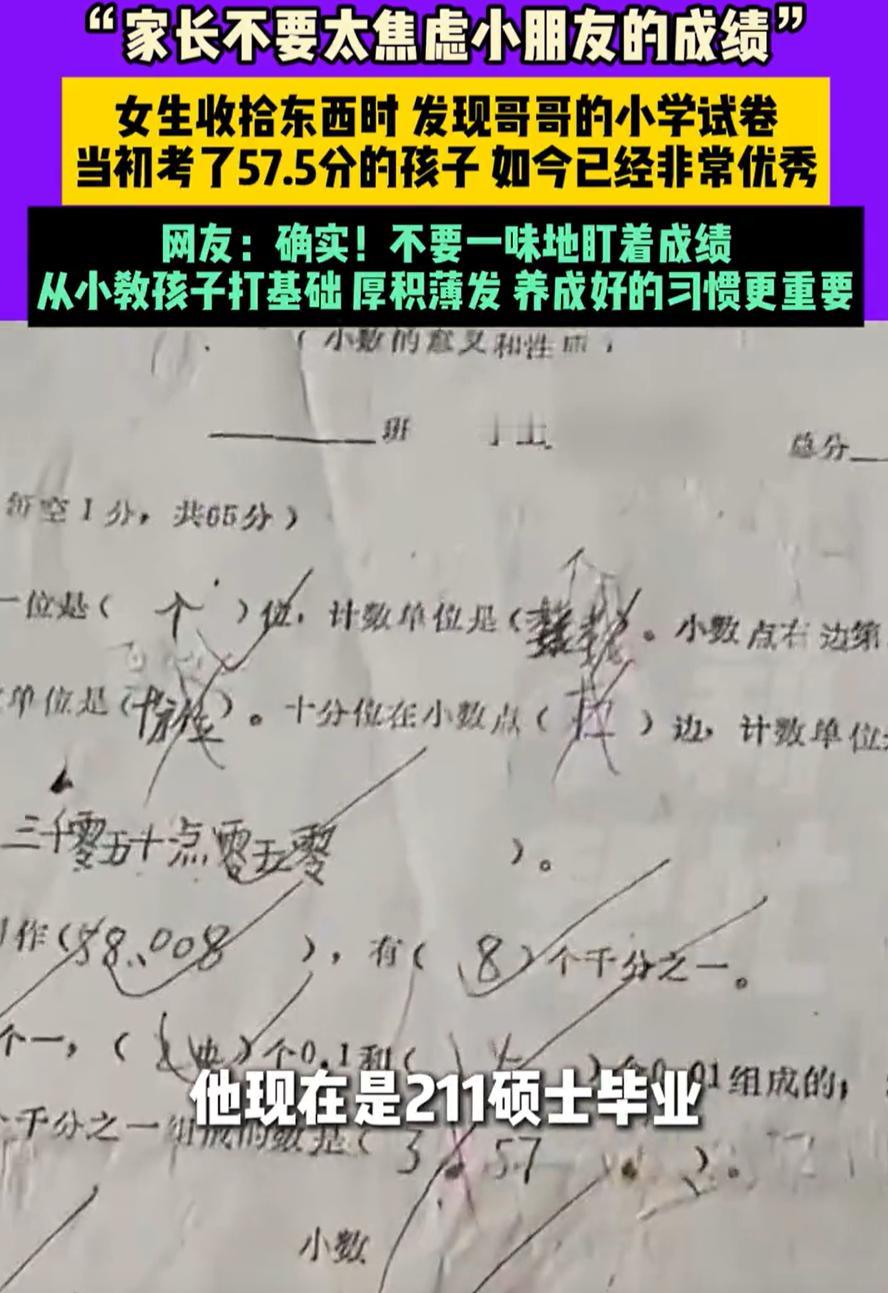 “家长不要太焦虑小朋友的成绩”
女生收拾东西时 发现哥哥的小学试卷
当初考了57.5分的孩子 如今已经非常优秀
网友：确实！不要一味地盯着成绩
从小教孩子打基础 厚积薄发 养成好的习惯更重要
（小数的意义和性质）
班 总分
每空1分，共65分）
一位是（ 个 ）位，计数单位是（ ）。小数点右边第
单位是（ ）。十分位在小数点（ ）边，计数单位
三千零五十点零五零 ）。
作（58.008 ），有（ 8 ）个千分之一。
个一，（ ）个0.1和（ ）个0.01组成的；
他现在是211硕士毕业
千分之一组成的数是（ 3.57 ）。
小数